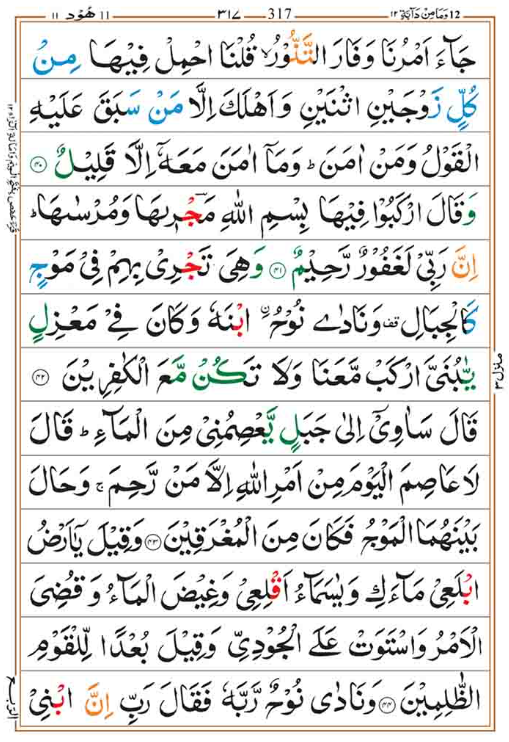 12 وَمَا مِنْ دَآبَّةٍ ١٢ 317 ٣١٧ 11 هُوْد ١١
جَآءَ اَمْرُنَا وَفَارَ التَّنُّوْرُ ۙ قُلْنَا احْمِلْ فِيْهَا مِنْ
كُلٍّ زَوْجَيْنِ اثْنَيْنِ وَاَهْلَكَ اِلَّا مَنْ سَبَقَ عَلَيْهِ
الْقَوْلُ وَمَنْ اٰمَنَ ؕ وَمَاۤ اٰمَنَ مَعَهٗۤ اِلَّا قَلِيْلٌ ﴿۴۰﴾
وَقَالَ ارْكَبُوْا فِيْهَا بِسْمِ اللّٰهِ مَجْرٖىهَا وَمُرْسٰىهَا ؕ
اِنَّ رَبِّيْ لَغَفُوْرٌ رَّحِيْمٌ ﴿۴۱﴾ وَهِيَ تَجْرِيْ بِهِمْ فِيْ مَوْجٍ
كَالْجِبَالِ قف وَنَادٰى نُوْحُ ۨ ابْنَهٗ وَكَانَ فِيْ مَعْزِلٍ
يّٰبُنَيَّ ارْكَبْ مَّعَنَا وَلَا تَكُنْ مَّعَ الْكٰفِرِيْنَ ﴿۴۲﴾
قَالَ سَاٰوِيْۤ اِلٰى جَبَلٍ يَّعْصِمُنِيْ مِنَ الْمَآءِ ؕ قَالَ
لَا عَاصِمَ الْيَوْمَ مِنْ اَمْرِ اللّٰهِ اِلَّا مَنْ رَّحِمَ ۚ وَحَالَ
بَيْنَهُمَا الْمَوْجُ فَكَانَ مِنَ الْمُغْرَقِيْنَ ﴿۴۳﴾ وَقِيْلَ يٰۤاَرْضُ
ابْلَعِيْ مَآءَكِ وَيٰسَمَآءُ اَقْلِعِيْ وَغِيْضَ الْمَآءُ وَقُضِيَ
الْاَمْرُ وَاسْتَوَتْ عَلَى الْجُوْدِيِّ وَقِيْلَ بُعْدًا لِّلْقَوْمِ
الظّٰلِمِيْنَ ﴿۴۴﴾ وَنَادٰى نُوْحٌ رَّبَّهٗ فَقَالَ رَبِّ اِنَّ ابْنِيْ
منزل ۳
الربع